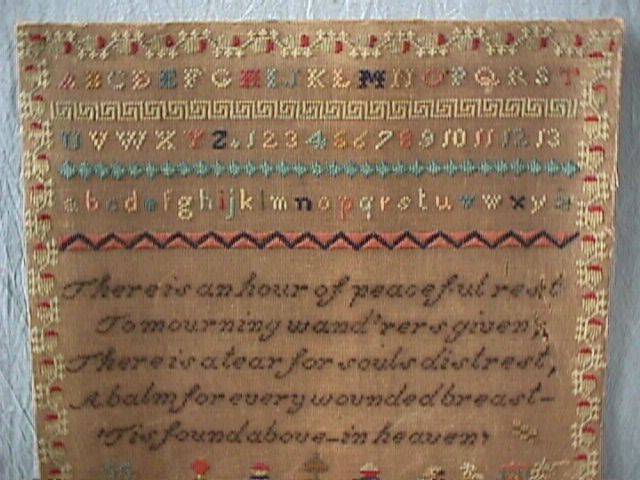 A B C D E F G H I J K L M N O P Q R S T
U V W X Y Z . 1 2 3 4 5 6 7 8 9 10 11 12 13
a b c d e f g h i j k l m n o p q r s t u v w x y z
There is an hour of peaceful rest
To mourning wand'rers given,
There is a tear for souls distrest,
A balm for every wounded breast-
'Tis found above-in heaven,